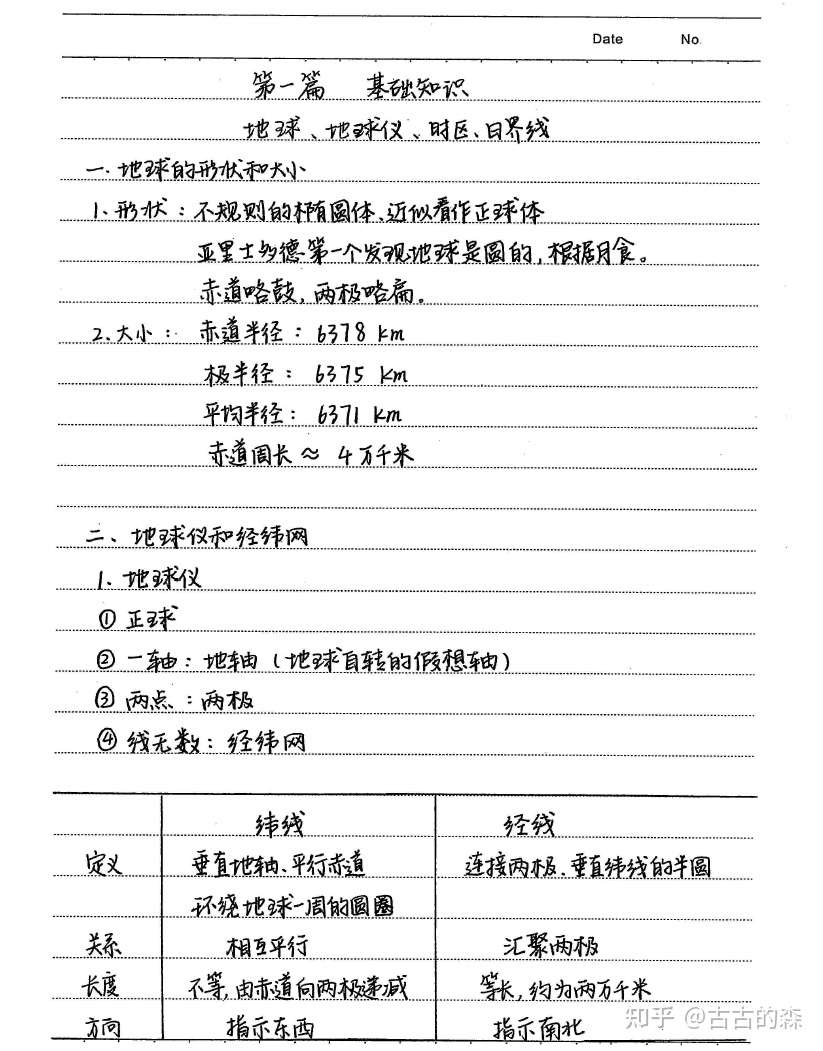 Date No.
第一篇 基础知识
地球、地球仪、时区、日界线
一.地球的形状和大小
1.形状：不规则的椭圆体、近似看作正球体
亚里士多德第一个发现地球是圆的，根据月食。
赤道略鼓，两极略扁。
2.大小：赤道半径：6378 km
极半径：6375 km
平均半径：6371 km
赤道周长≈ 4万千米
二、地球仪和经纬网
1.地球仪
① 正球
② 一轴：地轴（地球自转的假想轴）
③ 两点：两极
④ 线无数：经纬网
纬线 经线
定义 垂直地轴、平行赤道 连接两极、垂直纬线的半圆
环绕地球一周的圆圈
关系 相互平行 汇聚两极
长度 不等，由赤道向两极递减 等长，约为两万千米
方向 指示东西 指示南北
知乎 @古古的森